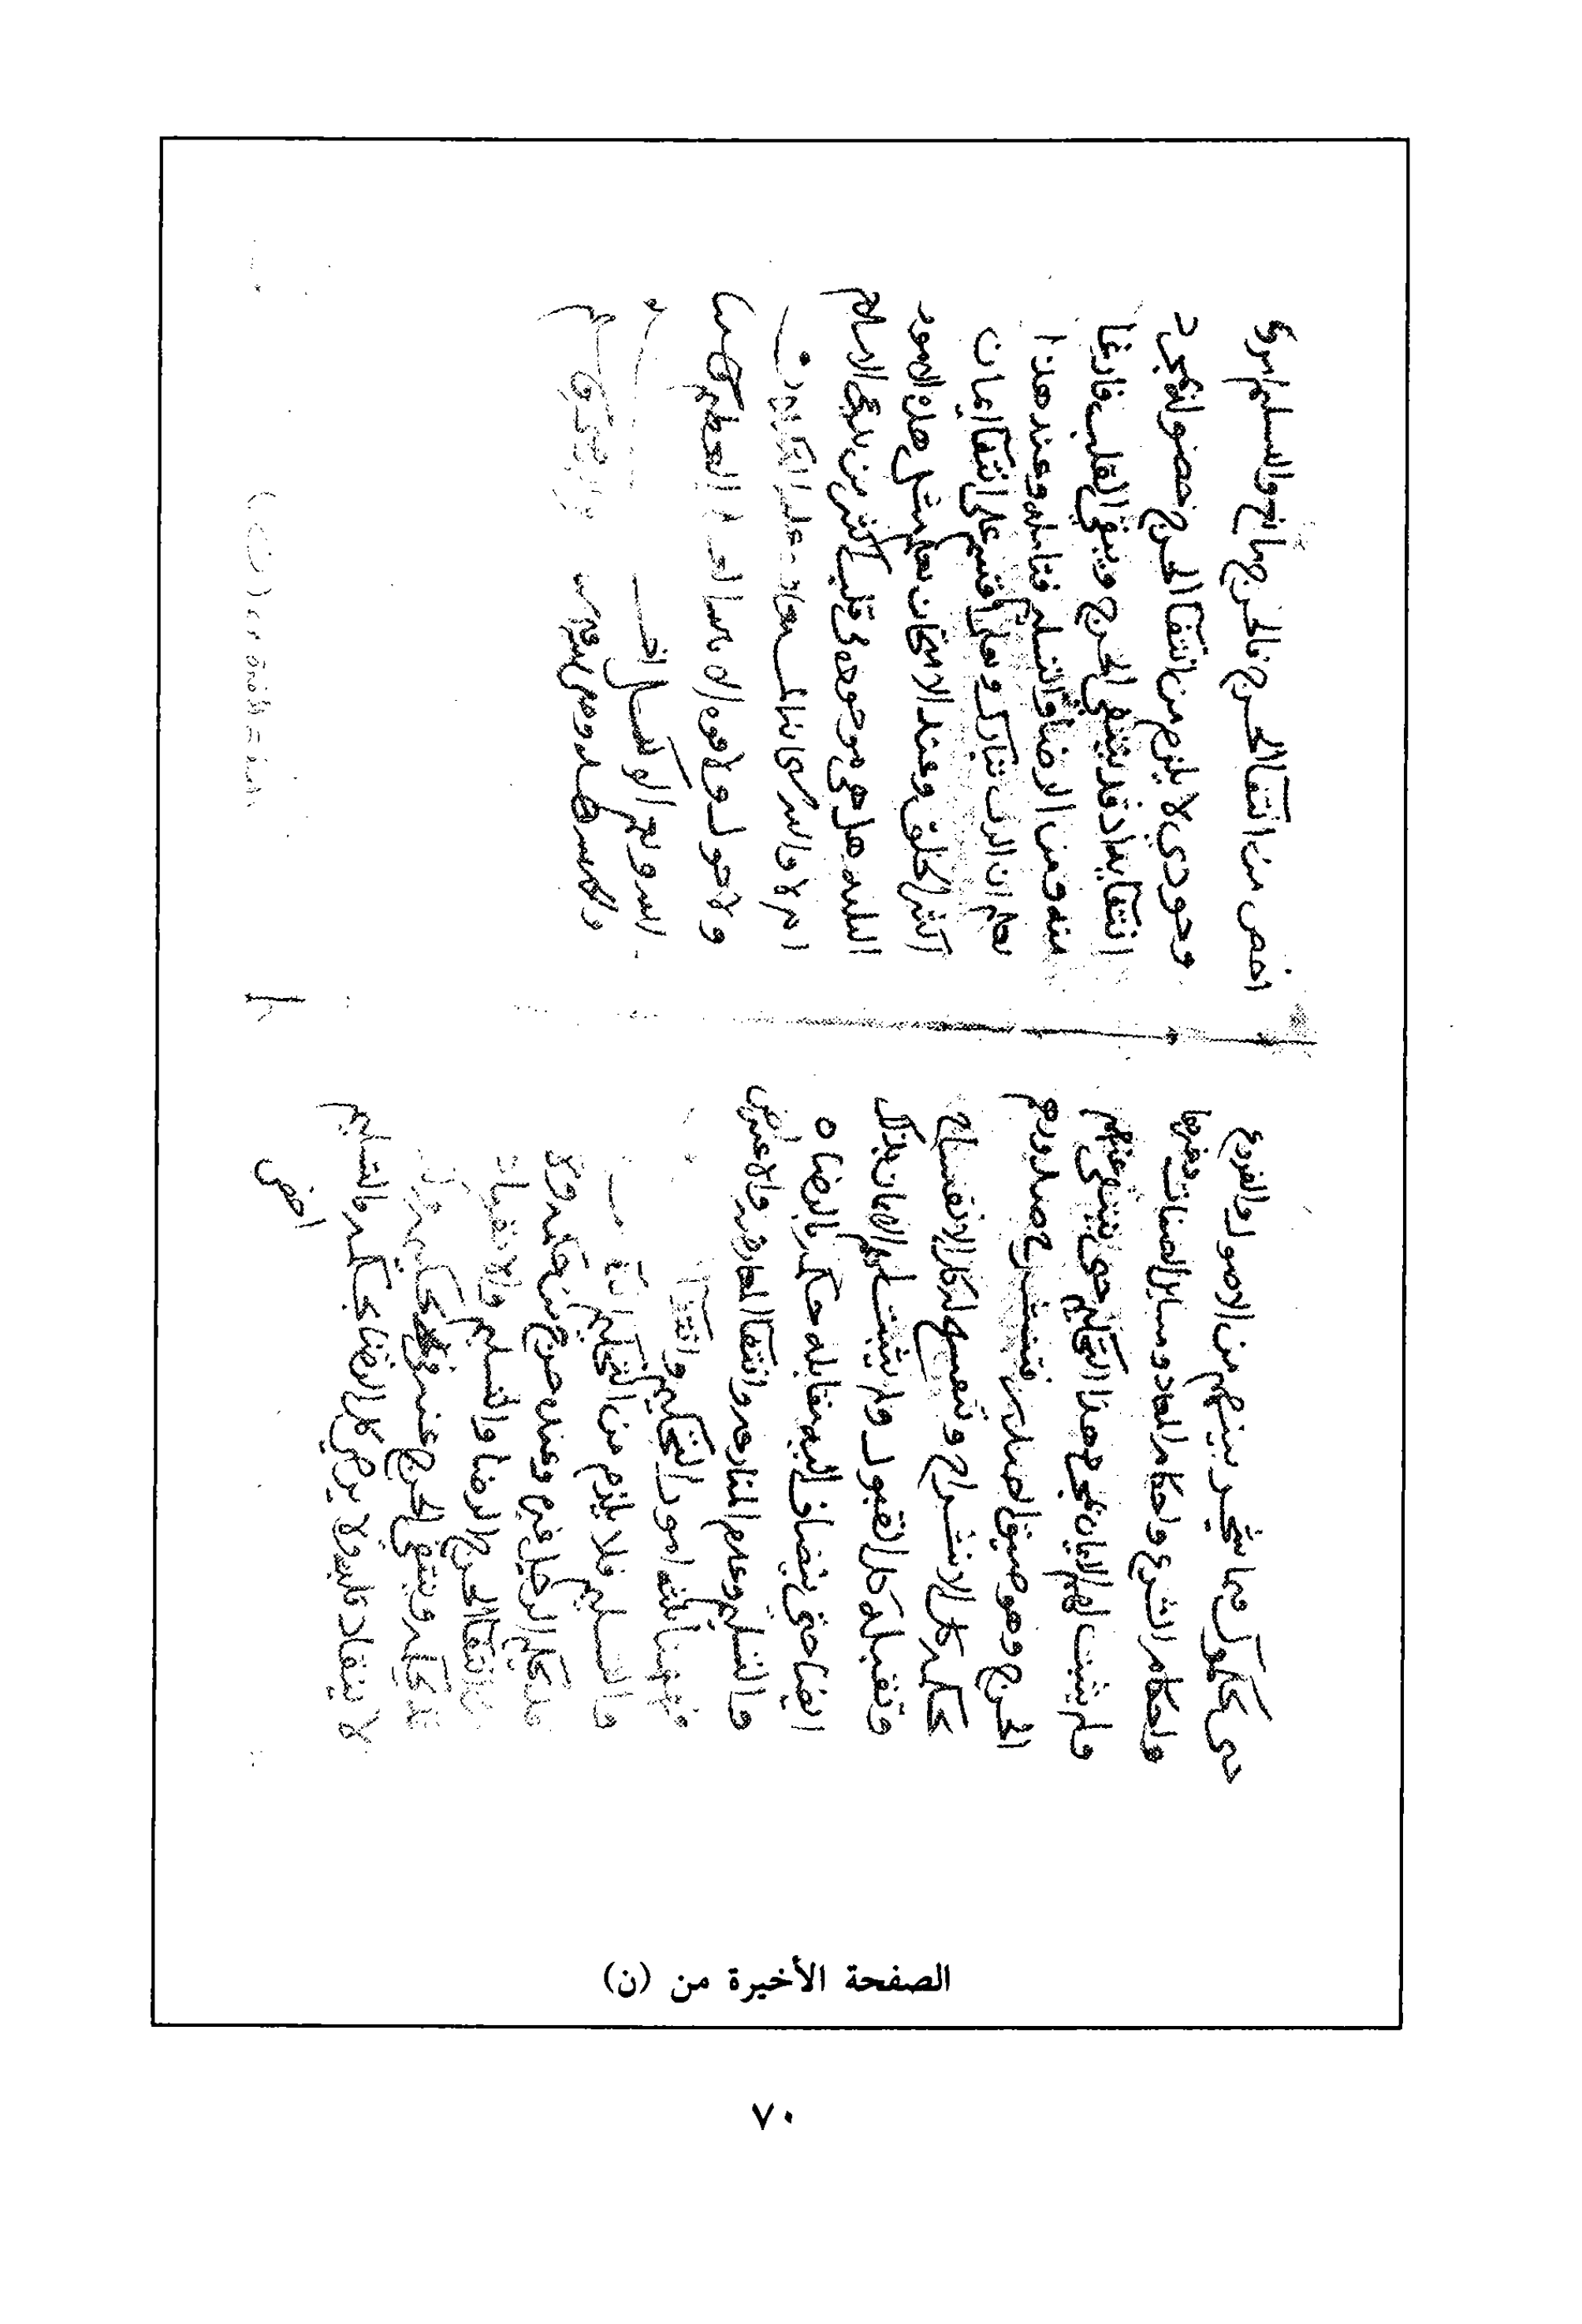 حتى يحكموك فيما شجر بينهم من الاصول والفروع
واحكام الشرع واحكام المعاد وسائر الصفات وغيرها
ولم يثبت لهم الايمان بمجرد هذا التحكيم حتى ينتفي عنهم
الحرج وهو ضيق الصدر فتنشرح صدورهم
لحكمه كل الانشراح وتنفسح له كل الانفساح
وتقبله كل القبول ولم يثبت لهم الايمان بذلك
ايضا حتى ينضاف اليه مقابلة حكمه بالرضا
والتسليم وعدم المنازعة وانتفا المعارضة والاعتراض
فهنا ثلثة امور التحكيم وانتفا
والتسليم فلا يلزم من التحكيم انتفا
قد يحكم الرجل غيره وعنده حرج من حكمه ولا
انتفا الحرج الرضا والتسليم والانقياد
قد يحكمه وينتفي الحرج عنه في تحكيمه ولكن
لا ينقاد قلبه ولا يرضى كل الرضا بحكمه والتسليم
اخص
اخص من انتفا الحرج فالحرج مانع والتسليم امر
وجودي لا يلزم من انتفا الحرج حصوله بمجرد
انتفايه اذ قد ينتفي الحرج ويبقى القلب فارغا
منه ومن الرضا والتسليم فتامله وعند هذا
يعلم ان الرب تبارك وتعالى اقسم على انتفا ايمان
اكثر الخلق وعند الامتحان تعلم مثل هذه الامور
الثلثة هل هي موجودة في قلب اكثر من يدعي الاسلام
ام لا والله سبحانه المستعان وعليه التكلان
ولا حول ولا قوة الا بالله العلي العظيم حسبنا
الله ونعم الوكيل
الصفحة الأخيرة من (ن)
٧٠